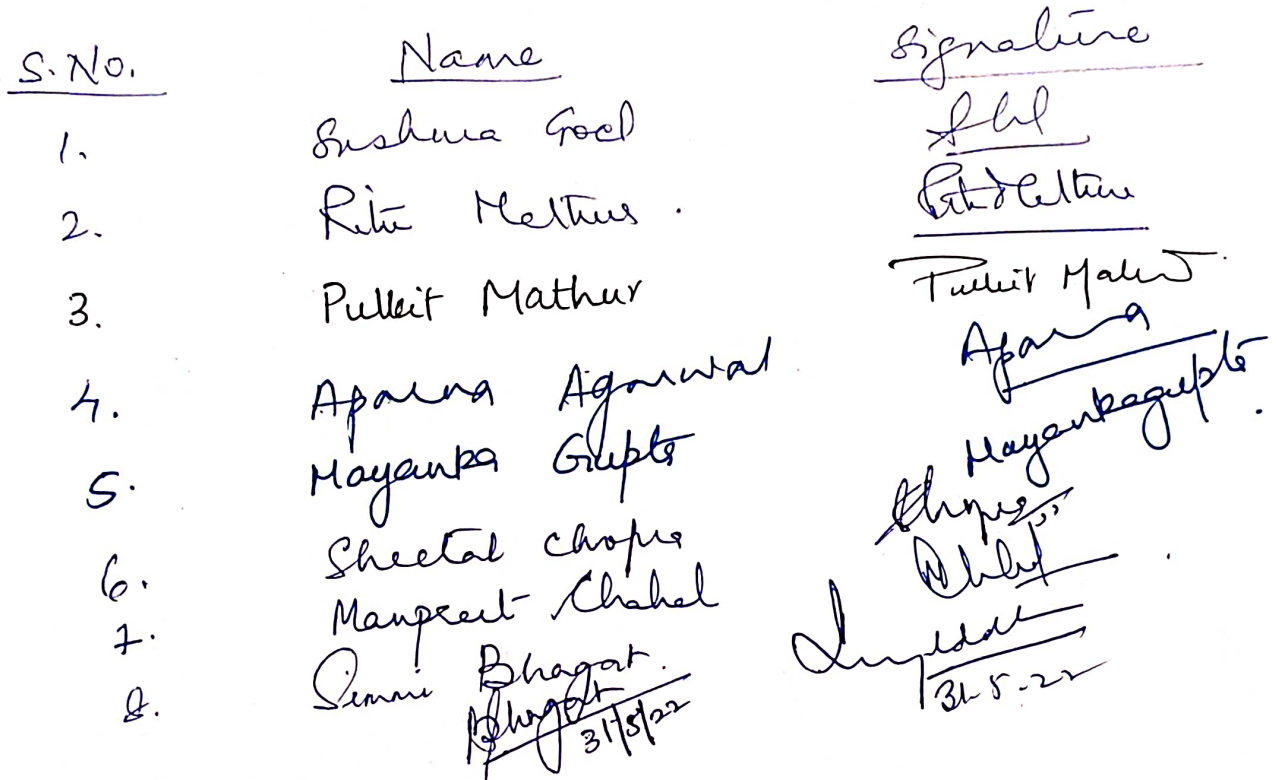 S.No. Name Signature
1. Sushma Goel
2. Ritu Mathur. Ritu Mathur
3. Pulkit Mathur Pulkit Mathur
4. Aparna Agarwal Aparna
5. Mayanka Gupta Mayankagupta
6. Sheetal Chopra Chopra
7. Manpreet Chahal
8. Simmi Bhagat.
Bhagat 31/5/22 31-5-22